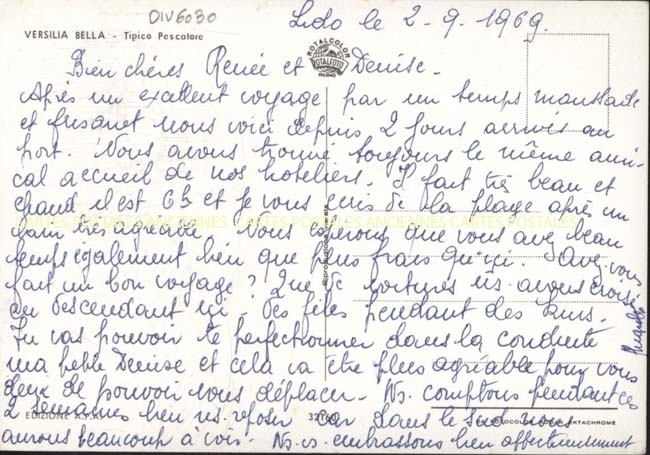 DIV6030
Lido le 2-9-1969.
VERSILIA BELLA - Tipico Pescatore
ROTALCOLOR
ROTALFOTO
MILANO
Bien chères Renée et Denise.
Après un excellent voyage par un temps maussade
et frisquet nous voici depuis 2 jours arrivés au
port. Nous avons trouvé toujours le même ami-
cal accueil de nos hoteliers. Il fait très beau et
chaud il est 6h et je vous écris de la plage après un
CARTES POSTALES ANCIENNES CARTES POSTALES
bain très agréable. Nous espérons que vous avez beau
temps également bien que plus frais qu'ici. Avez-vous
fait un bon voyage? Que de voitures ns. avons croisé
en descendant ici. Des files pendant des kms.
Tu vas pouvoir te perfectionner dans la conduite
ma petite Denise et cela va être plus agréable pour vous
deux de pouvoir vous déplacer. Ns. comptons pendant ces
2 semaines bien ns. reposer car dans le Sud nous
EDIZIONE A.F.
aurons beaucoup à voir. Ns. vs. embrassons bien affectueusement